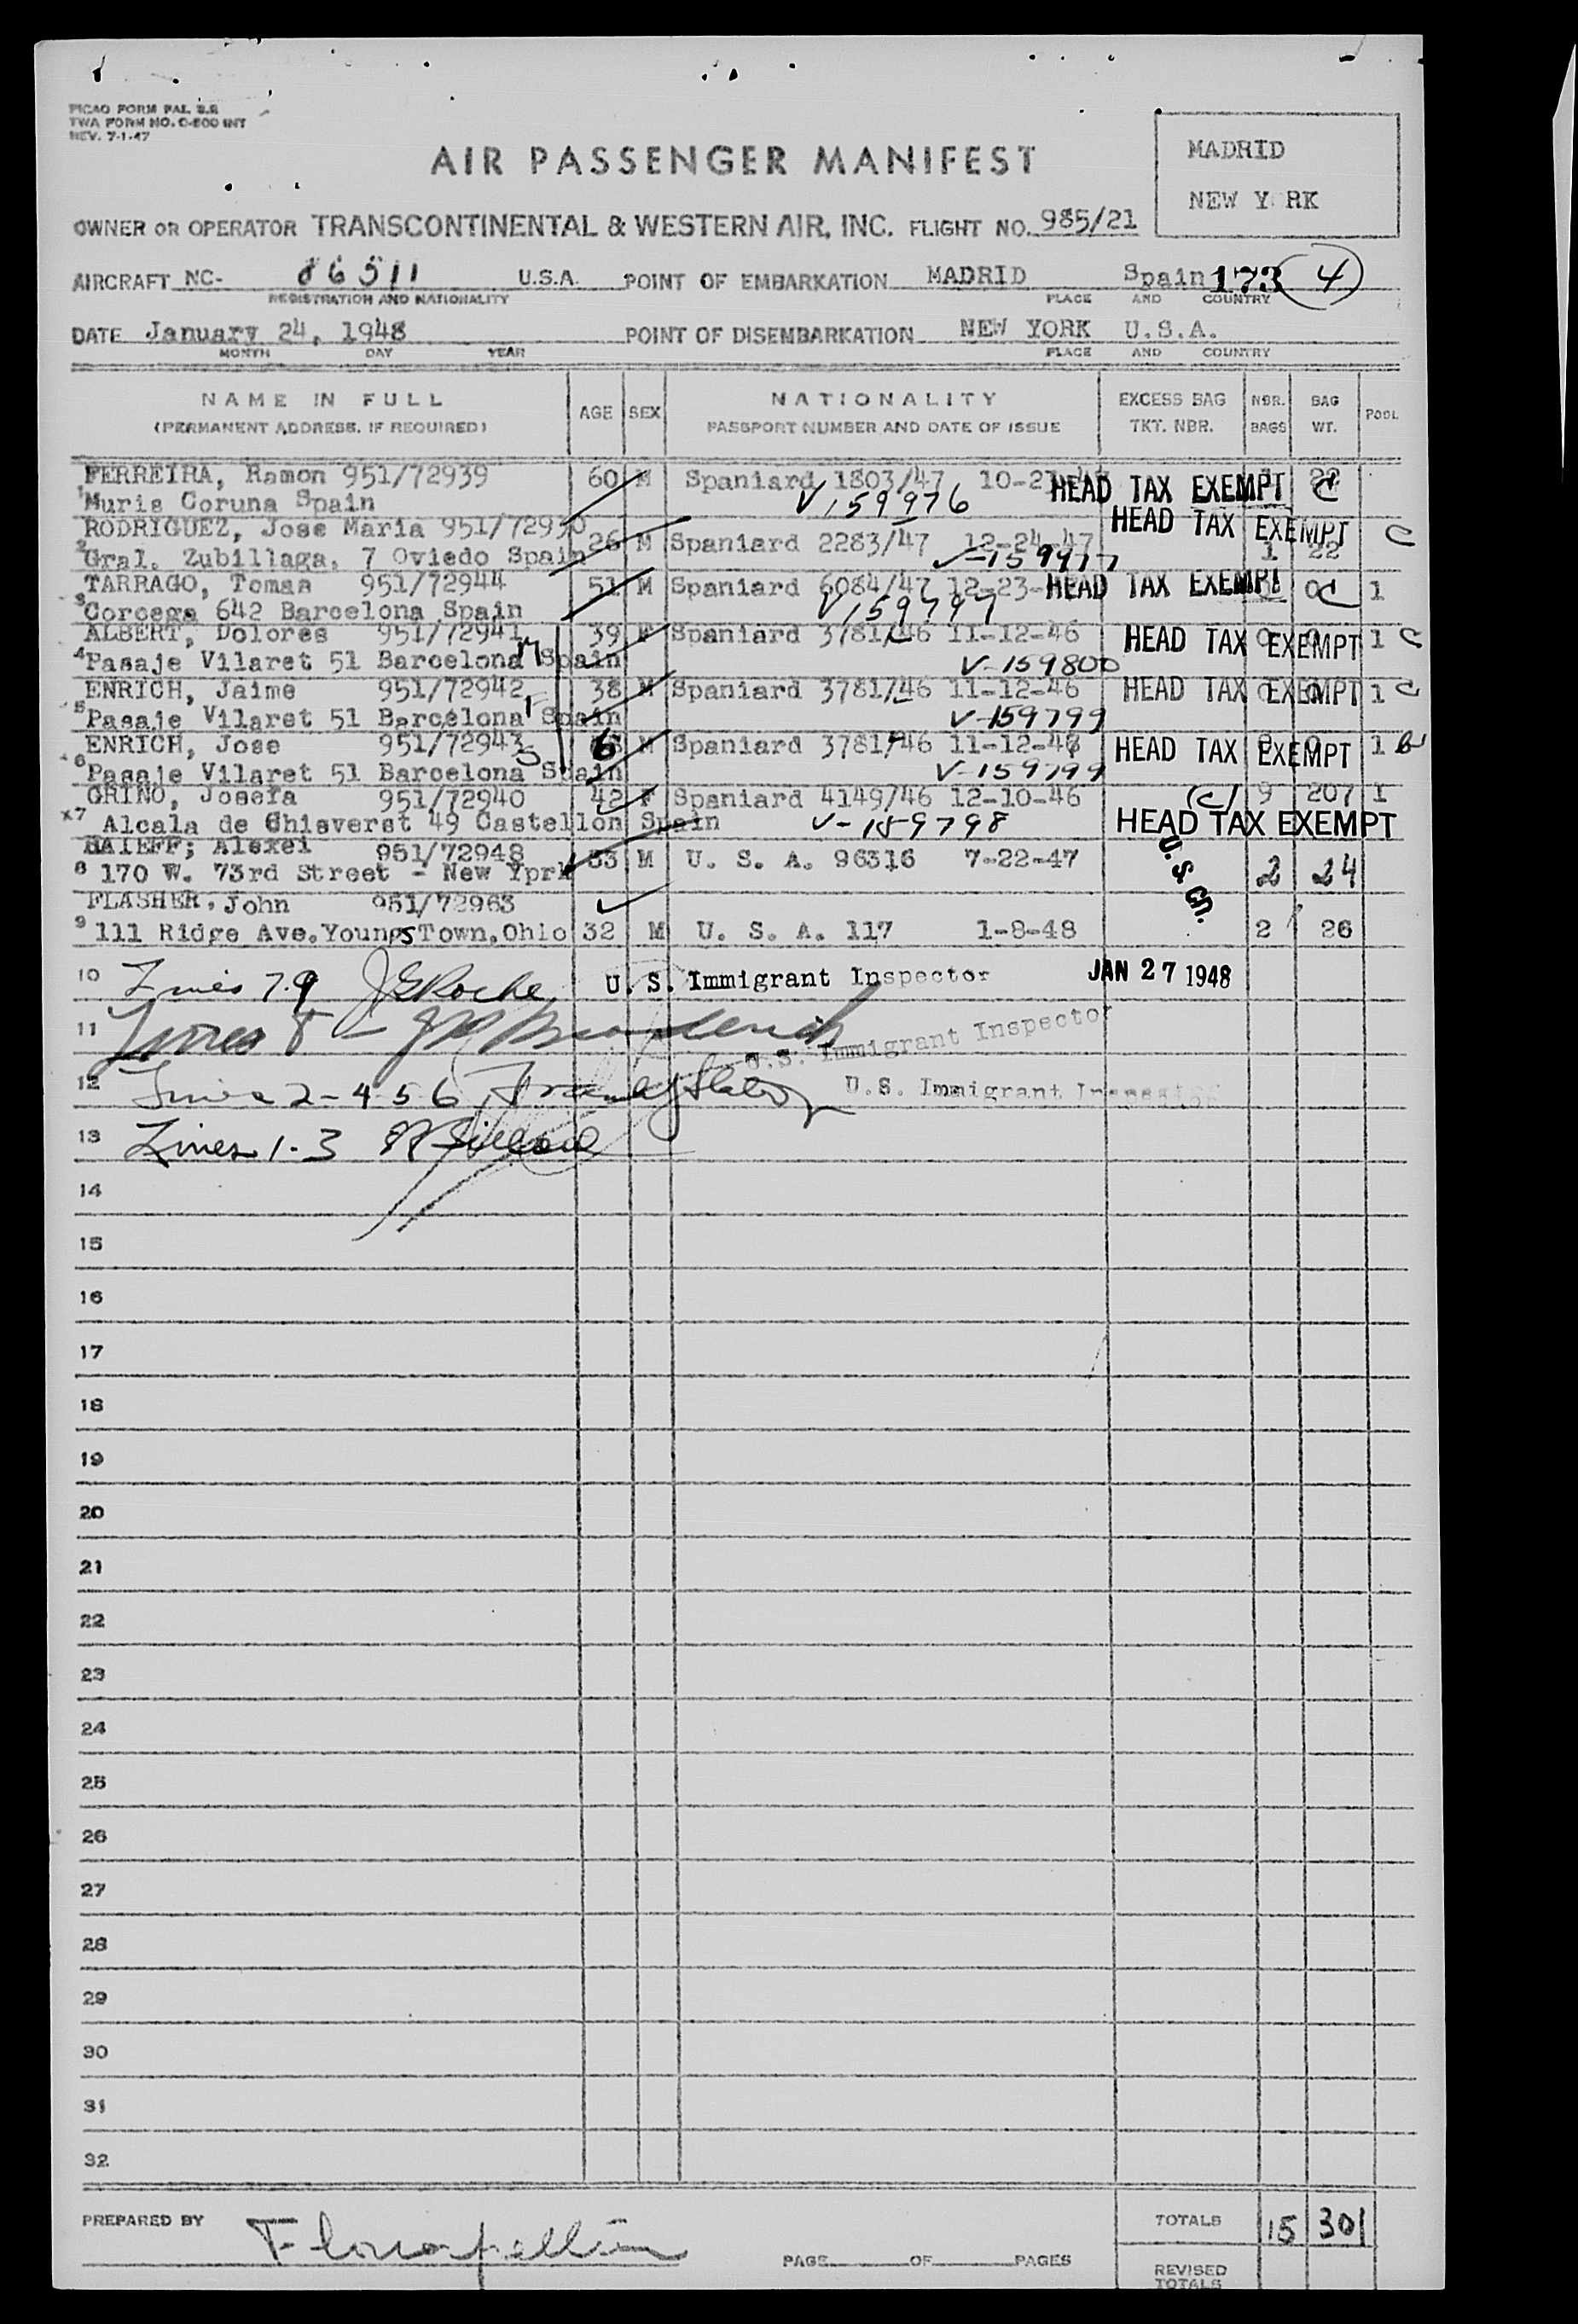 PICAO FORM PAL 2.2
TWA FORM NO. O-800 INT
REV. 7-1-47
AIR PASSENGER MANIFEST
MADRID
NEW Y RK
OWNER OR OPERATOR TRANSCONTINENTAL & WESTERN AIR, INC. FLIGHT NO. 985/21
AIRCRAFT NC- 86511 U.S.A. POINT OF EMBARKATION MADRID Spain 173 4
REGISTRATION AND NATIONALITY PLACE AND COUNTRY
DATE January 24, 1948 POINT OF DISEMBARKATION NEW YORK U.S.A.
MONTH DAY YEAR PLACE AND COUNTRY
NAME IN FULL AGE SEX NATIONALITY EXCESS BAG NBR. BAG POOL
(PERMANENT ADDRESS, IF REQUIRED) PASSPORT NUMBER AND DATE OF ISSUE TKT. NBR. BAGS WT.
FERREIRA, Ramon 951/72939 60 M Spaniard 1803/47 HEAD TAX EXEMPT 22 C
1 Muris Coruna Spain V 159976
RODRIGUEZ, Jose Maria 951/72930 26 M Spaniard 2283/47 12-24-47 HEAD TAX EXEMPT 1 22 C
2 Gral. Zubillaga, 7 Oviedo Spain V-159977
TARRAGO, Tomas 951/72944 51 M Spaniard 6084/47 12-23- HEAD TAX EXEMPT 0 C 1
3 Corcega 642 Barcelona Spain V159797
ALBERT, Dolores 951/72941 39 F Spaniard 3781/46 11-12-46 HEAD TAX EXEMPT 1 C
4 Pasaje Vilaret 51 Barcelona M Spain V-159800
ENRICH, Jaime 951/72942 38 M Spaniard 3781/46 11-12-46 HEAD TAX EXEMPT 1 C
5 Pasaje Vilaret 51 Barcelona F Spain V-159799
ENRICH, Jose 951/72943 6 M Spaniard 3781/46 11-12-46 HEAD TAX EXEMPT 1
6 Pasaje Vilaret 51 Barcelona S Spain V-159799
GRINO, Josefa 951/72940 42 F Spaniard 4149/46 12-10-46 (C) 9 207 1
x7 Alcala de Chisverst 49 Castellon Spain V-159798 HEAD TAX EXEMPT
BAIEFF; Alexei 951/72948 53 M U. S. A. 96316 7-22-47 U.S. Cit. 2 24
8 170 W. 73rd Street - New Yprk
FLASHER, John 951/72963
9 111 Ridge Ave.YoungsTown,Ohio 32 M U. S. A. 117 1-8-48 2 26
10 Lines 7.9 JGRoche U. S. Immigrant Inspector JAN 27 1948
11 Lines 8 - U.S. Immigrant Inspector
12 Lines 2-4-5-6 U.S. Immigrant Inspector
13 Lines 1-3
14
15
16
17
18
19
20
21
22
23
24
25
26
27
28
29
30
31
32
PREPARED BY TOTALS 15 301
PAGE OF PAGES
REVISED
TOTALS